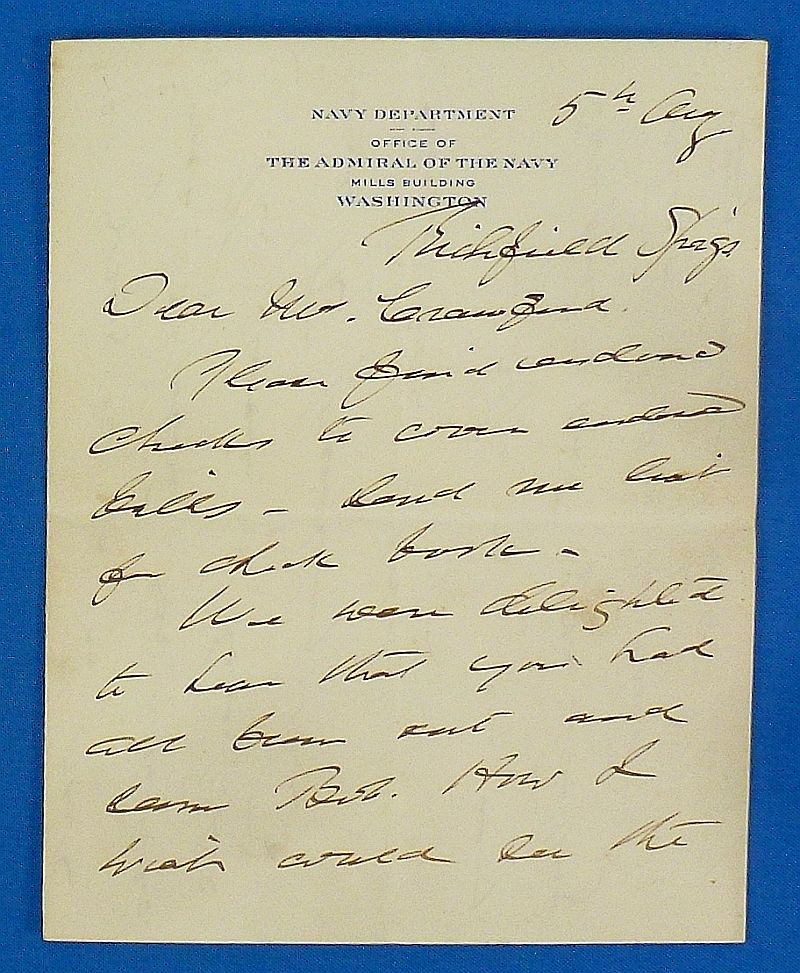 NAVY DEPARTMENT
OFFICE OF
THE ADMIRAL OF THE NAVY
MILLS BUILDING
WASHINGTON
5th Aug
Richfield Sp'gs
Dear Mr. Crawford.
Please find enclosed
checks to cover enclosed
bills – Send me last
for check book –
We were delighted
to hear that you had
all been out and
seen Bob. How I
wish could see the